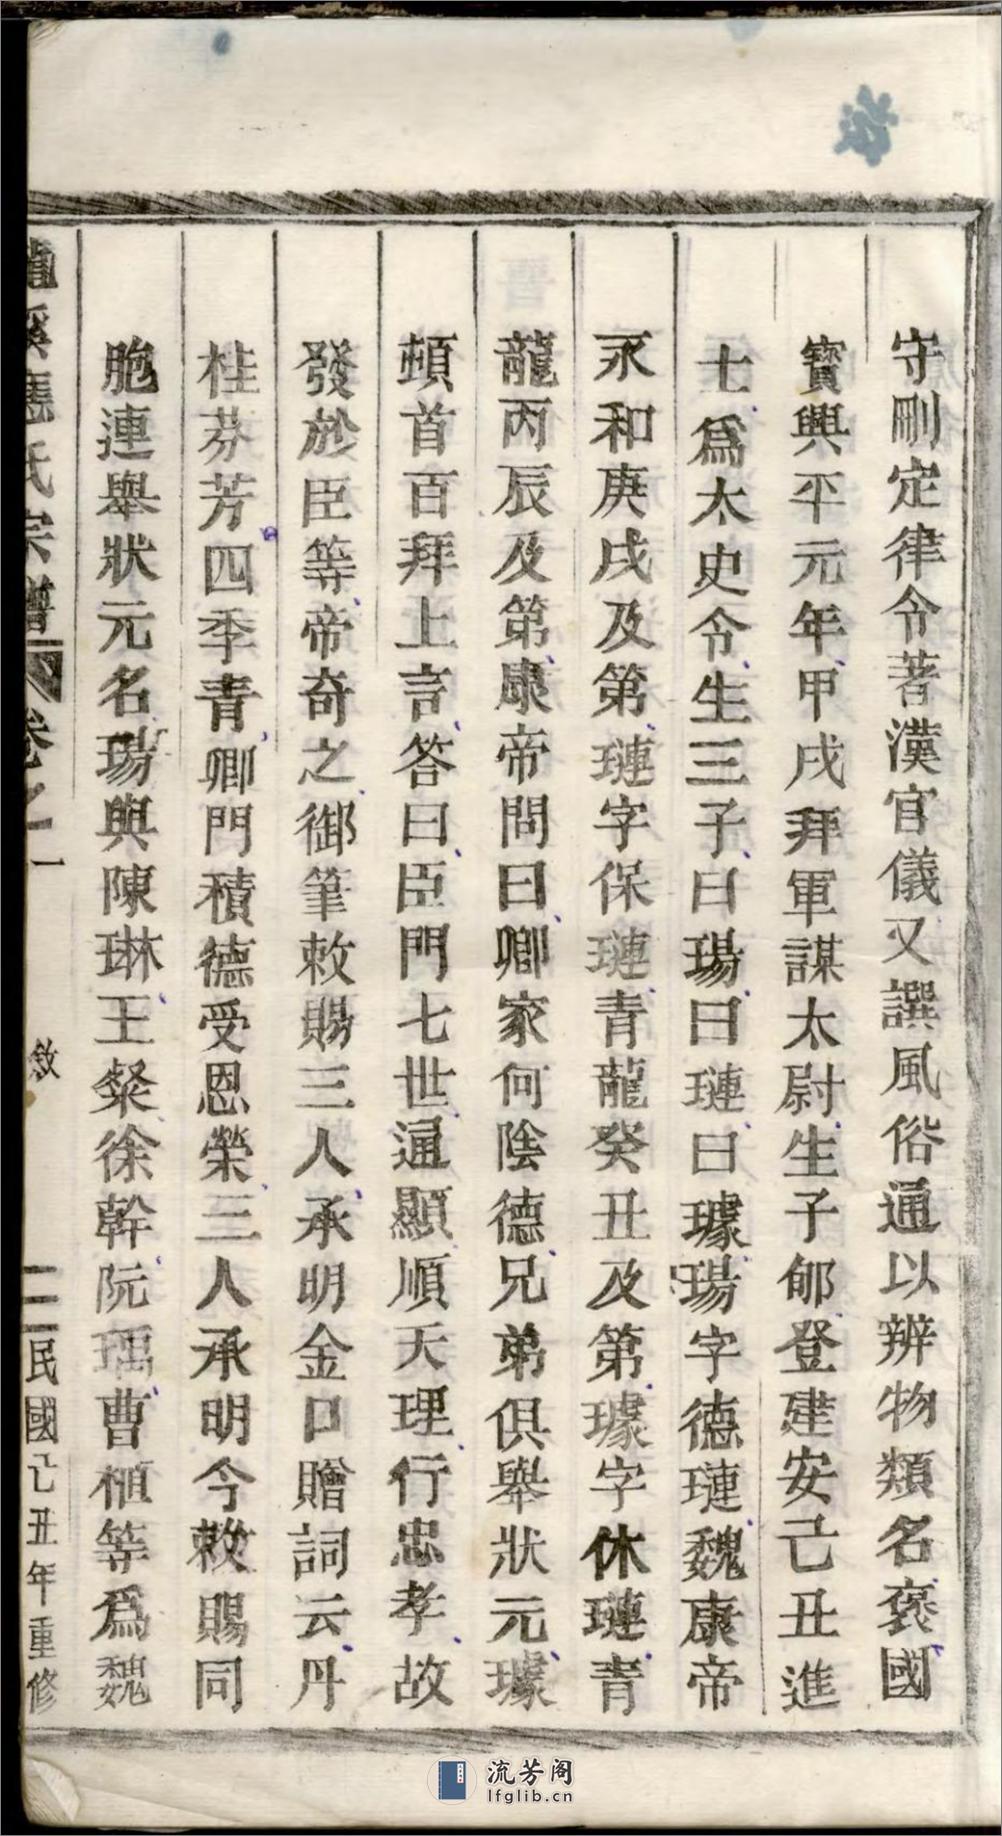 守刪定律令著漢官儀又譔風俗通以辨物類名褒國
寳興平元年甲戌拜軍謀太尉生子郇登建安己丑進
士爲太史令生三子曰瑒曰璉曰璩瑒字德璉魏康帝
永和庚戌及第璉字保璉青龍癸丑及第璩字休璉青
龍丙辰及第康帝問曰卿家何陰德兄弟俱舉狀元璩
頓首百拜上言答曰臣門七世通顯順天理行忠孝故
發於臣等帝奇之御筆敕賜三人承明金口贈詞云丹
桂芬芳四季青卿門積德受恩榮三人承明今敕賜同
胞連舉狀元名瑒與陳琳王粲徐幹阮瑀曹植等爲魏
龍溪應氏宗譜 卷之一 敘 二 民國己丑年重修
流芳阁
lfglib.cn